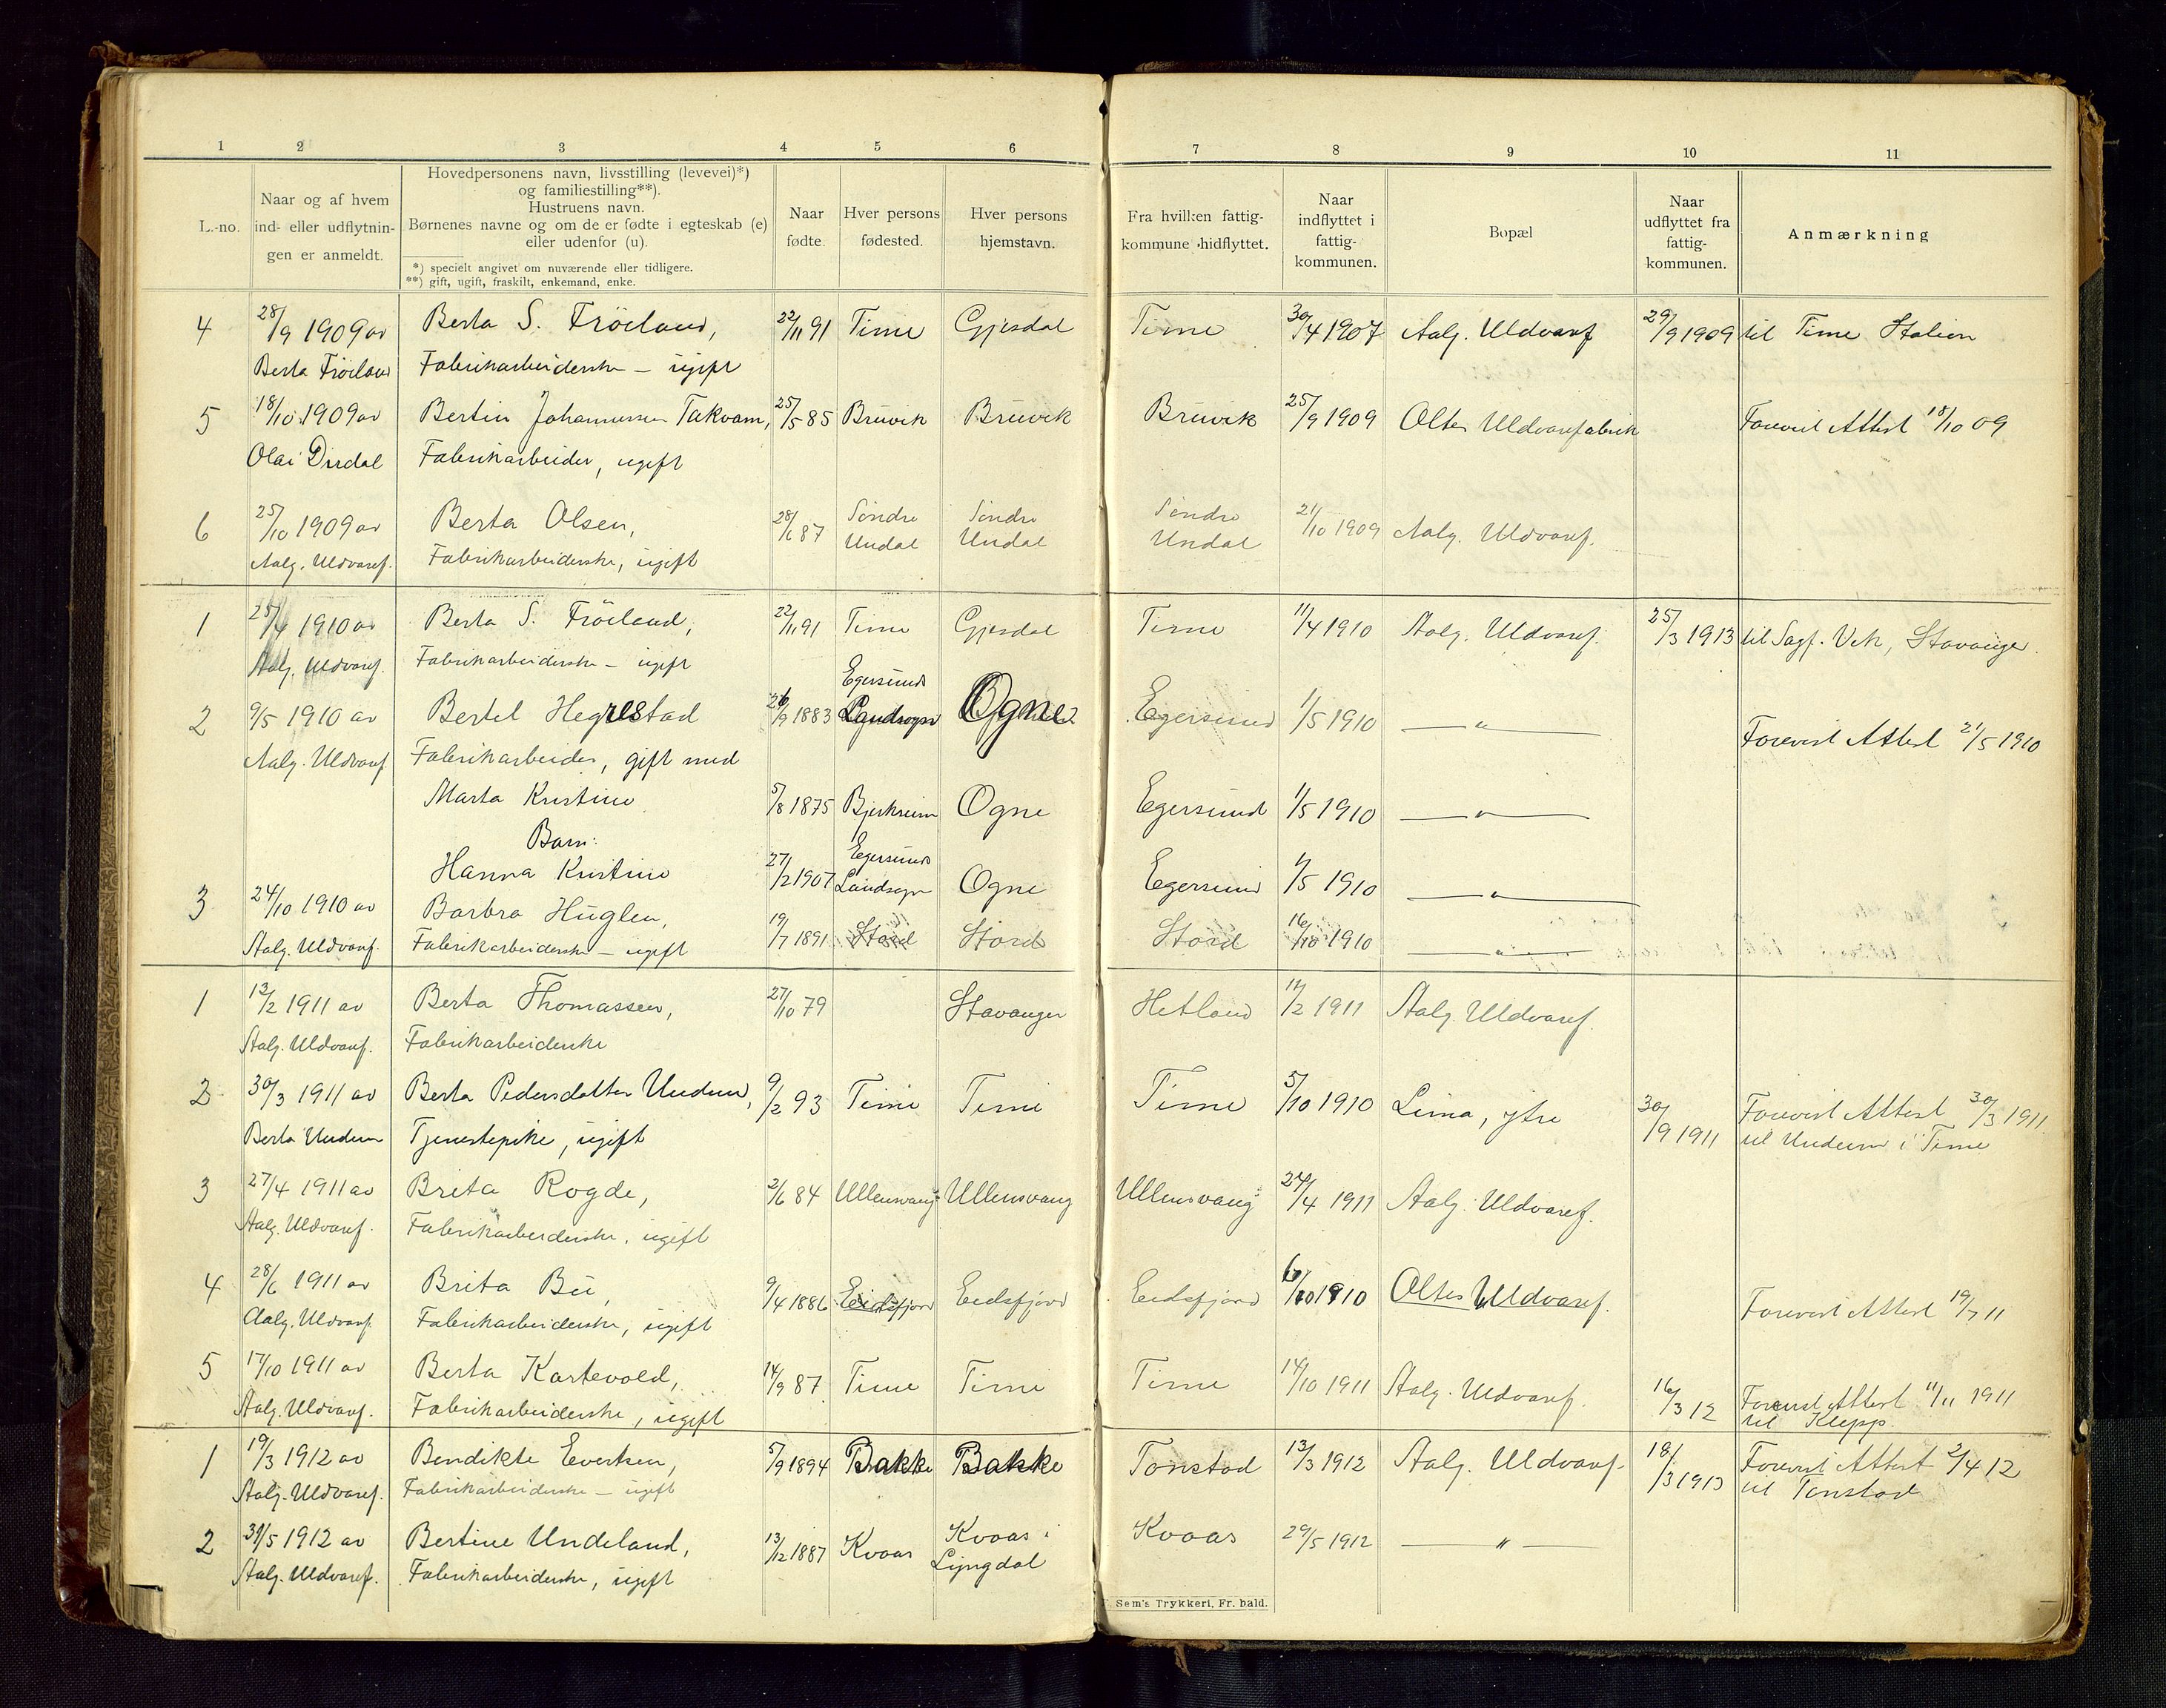 1 2 3 4 5 6 7 8 9 10 11
L.-no.
Naar og af hvem
ind- eller udflytnin-
gen er anmeldt.
Hovedpersonens navn, livsstilling (levevei)*)
og familiestilling**).
Hustruens navn.
Børnenes navne og om de er fødte i egteskab (e)
eller udenfor (u).
*) specielt angivet om nuværende eller tidligere.
**) gift, ugift, fraskilt, enkemand, enke.
Naar
fødte.
Hver persons
fødested.
Hver persons
hjemstavn.
Fra hvilken fattig-
kommune hidflyttet.
Naar
indflyttet i
fattig-
kommunen.
Bopæl
Naar
udflyttet fra
fattig-
kommunen.
Anmærkning
4 28/9 1909 av Berta S. Fröiland, 22/11 91 Time Gjesdal Time 30/4 1907 Aalg. Uldvaref 29/9 1909 til Time Station
Berta Fröiland Fabrikarbeiderske – ugift
5 18/10 1909 av Bertin Johannessen Takvam, 25/5 85 Bruvik Bruvik Bruvik 25/9 1909 Oltes Uldvarefabrik Forevist Attest 18/10 09
Olai Dirdal Fabrikarbeider, ugift
6 25/10 1909 av Berta Olsen, 28/6 87 Söndre Undal Söndre Undal Söndre Undal 21/10 1909 Aalg. Uldvaref.
Aalg. Uldvaref. Fabrikarbeiderske, ugift
1 25/4 1910 av Berta S. Fröiland, 22/11 91 Time Gjesdal Time 11/4 1910 Aalg. Uldvaref. 25/3 1913 til Sagf. Vek, Stavanger.
Aalg. Uldvaref. Fabrikarbeiderske – ugift
2 9/5 1910 av Bertel Hegrestad 26/9 1883 Egersunds Landsogn Ogne Egersund 1/5 1910 — " — Forevist Attest 21/5 1910
Aalg. Uldvaref Fabrikarbeider, gift med
Marta Kristine 5/8 1875 Bjerkreim Ogne Egersund 1/5 1910 — " —
Barn:
Hanna Kristine 27/2 1907 Egersunds Landsogn Ogne Egersund 1/5 1910 — " —
3 24/10 1910 av Barbra Huglen, 19/7 1891 Stord Stord Stord 16/10 1910 — " —
Aalg. Uldvaref. Fabrikarbeiderske – ugift
1 13/2 1911 av Berta Thomassen, 27/10 79 Stavanger Hetland 11/2 1911 Aalg. Uldvaref.
Aalg. Uldvaref. Fabrikarbeiderske
2 30/3 1911 av Berta Pedersdatter Undem, 9/2 93 Time Time Time 5/10 1910 Lima, ytre 30/9 1911 Forevist Attest 30/3 1911.
Berta Undem Tjenestepike, ugift til Undem i Time
3 27/4 1911 av Brita Rogde, 2/6 84 Ullensvang Ullensvang Ullensvang 24/4 1911 Aalg. Uldvaref.
Aalg. Uldvaref. Fabrikarbeiderske, ugift
4 28/6 1911 av Brita Bu, 9/4 1886 Eidsfjord Eidsfjord Eidsfjord 6/10 1910 Oltes Uldvaref. Forevist Attest 19/7 11
Aalg. Uldvaref. Fabrikarbeiderske, ugift
5 17/10 1911 av Berta Kartevold, 14/9 87 Time Time Time 14/10 1911 Aalg. Uldvaref. 16/3 12 Forevist Attest 11/11 1911
Aalg. Uldvaref. Fabrikarbeiderske, ugift til Klepp
1 19/3 1912 av Bendikte Evertsen, 5/9 1894 Bakke Bakke Tonstad 13/3 1912 Aalg. Uldvaref. 18/3 1913 Forevist Attest 2/4 12
Aalg. Uldvaref. Fabrikarbeiderske – ugift til Tonstad
2 31/5 1912 av Bertine Undeland, 13/12 1887 Kvaas Kvaas i Lyngdal Kvaas 29/5 1912 — " —
Aalg. Uldvaref. Fabrikarbeiderske, ugift
Sem's Trykkeri, Fr. hald.